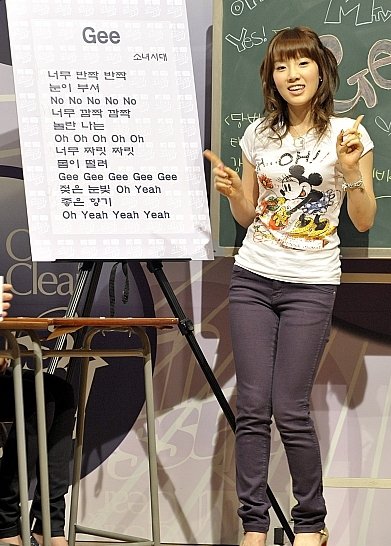 Gee
소녀시대
너무 반짝 반짝
눈이 부셔
No No No No No
너무 깜짝 깜짝
놀란 나는
Oh Oh Oh Oh Oh
너무 짜릿 짜릿
몸이 떨려
Gee Gee Gee Gee Gee
젖은 눈빛 Oh Yeah
좋은 향기
Oh Yeah Yeah Yeah
Yes!
Gee
OH!!
Clea